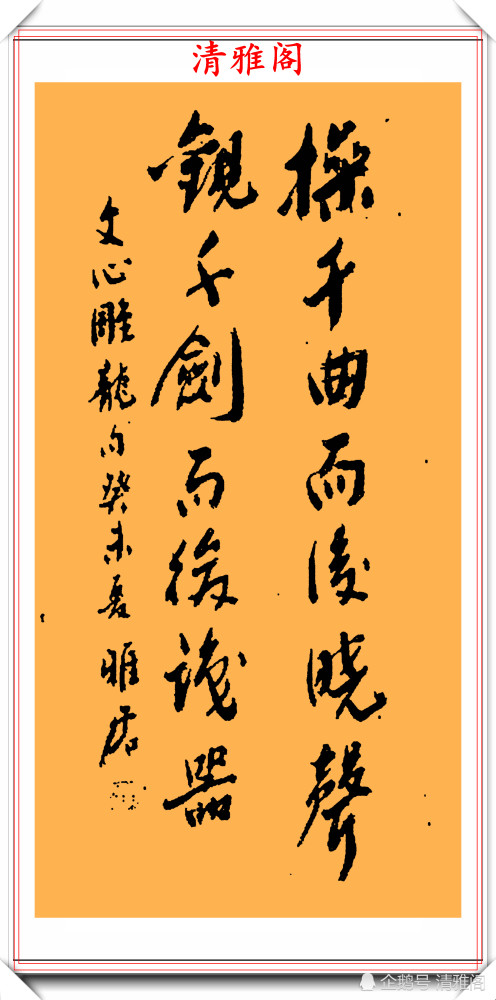 清雅阁
操千曲而後晓聲
觀千劍而後識器
文心雕龍句癸未夏 雅君
企鹅号 清雅阁